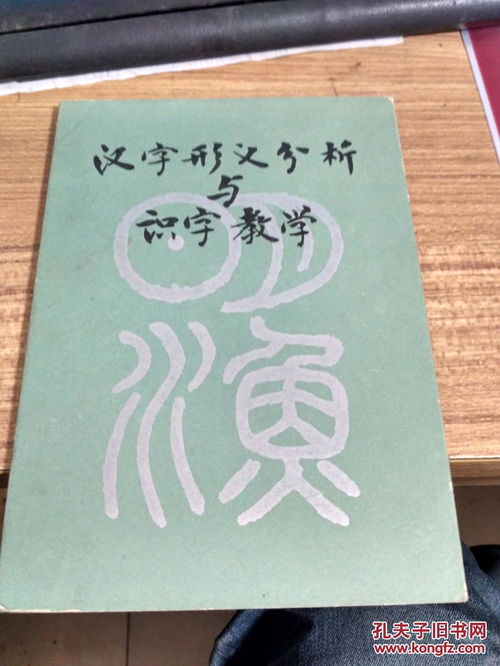 汉字形义分析
与
识字教学
明
渔
孔夫子旧书网
www.kongfz.com